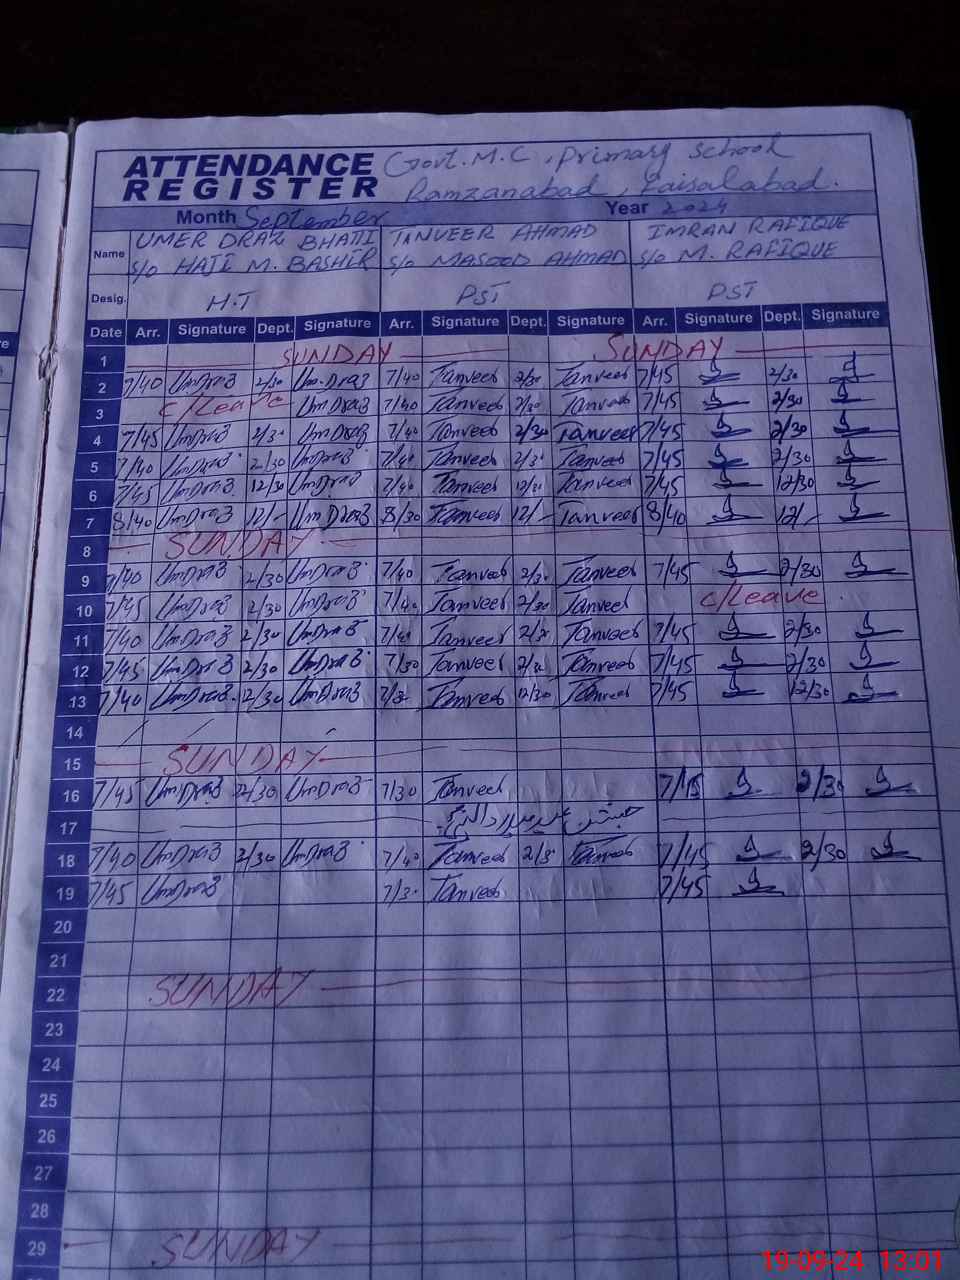 ATTENDANCE REGISTER Govt. M.C, Primary School
Ramzanabad, Faisalabad.
Month September Year 2024
Name UMER DRAZ BHATTI TANVEER AHMAD IMRAN RAFIQUE
S/O HAJI M. BASHIR S/O MASOOD AHMAD S/O M. RAFIQUE
Desig. H.T PST PST
Date Arr. Signature Dept. Signature Arr. Signature Dept. Signature Arr. Signature Dept. Signature
1 SUNDAY SUNDAY
2 7/40 UmDraz 2/30 Um.Draz 7/40 Tanveer 2/30 Tanveer 7/45 2/30
3 C/Leave UmDraz 7/40 Tanveer 2/30 Tanveer 7/45 2/30
4 7/45 UmDraz 2/30 UmDraz 7/40 Tanveer 2/30 Tanveer 7/45 2/30
5 7/40 UmDraz 2/30 UmDraz 7/40 Tanveer 2/30 Tanveer 7/45 2/30
6 7/45 UmDraz 12/30 UmDraz 7/40 Tanveer 12/30 Tanveer 7/45 12/30
7 8/40 UmDraz 12/- UmDraz 8/30 Tanveer 12/- Tanveer 8/40 12/-
8 SUNDAY
9 7/40 UmDraz 2/30 UmDraz 7/40 Tanveer 2/30 Tanveer 7/45 2/30
10 7/45 UmDraz 2/30 UmDraz 7/40 Tanveer 2/30 Tanveer C/Leave
11 7/40 UmDraz 2/30 UmDraz 7/40 Tanveer 2/30 Tanveer 7/45 2/30
12 7/45 UmDraz 2/30 UmDraz 7/30 Tanveer 2/30 Tanveer 7/45 2/30
13 7/40 UmDraz 12/30 UmDraz 7/30 Tanveer 12/30 Tanveer 7/45 12/30
14
15 SUNDAY
16 7/45 UmDraz 2/30 UmDraz 7/30 Tanveer 7/45 2/30
17
18 7/40 UmDraz 2/30 UmDraz 7/40 Tanveer 2/30 Tanveer 7/45 2/30
19 7/45 UmDraz 7/30 Tanveer 7/45
20
21
22 SUNDAY
23
24
25
26
27
28
29 SUNDAY
19-09-24 13:01